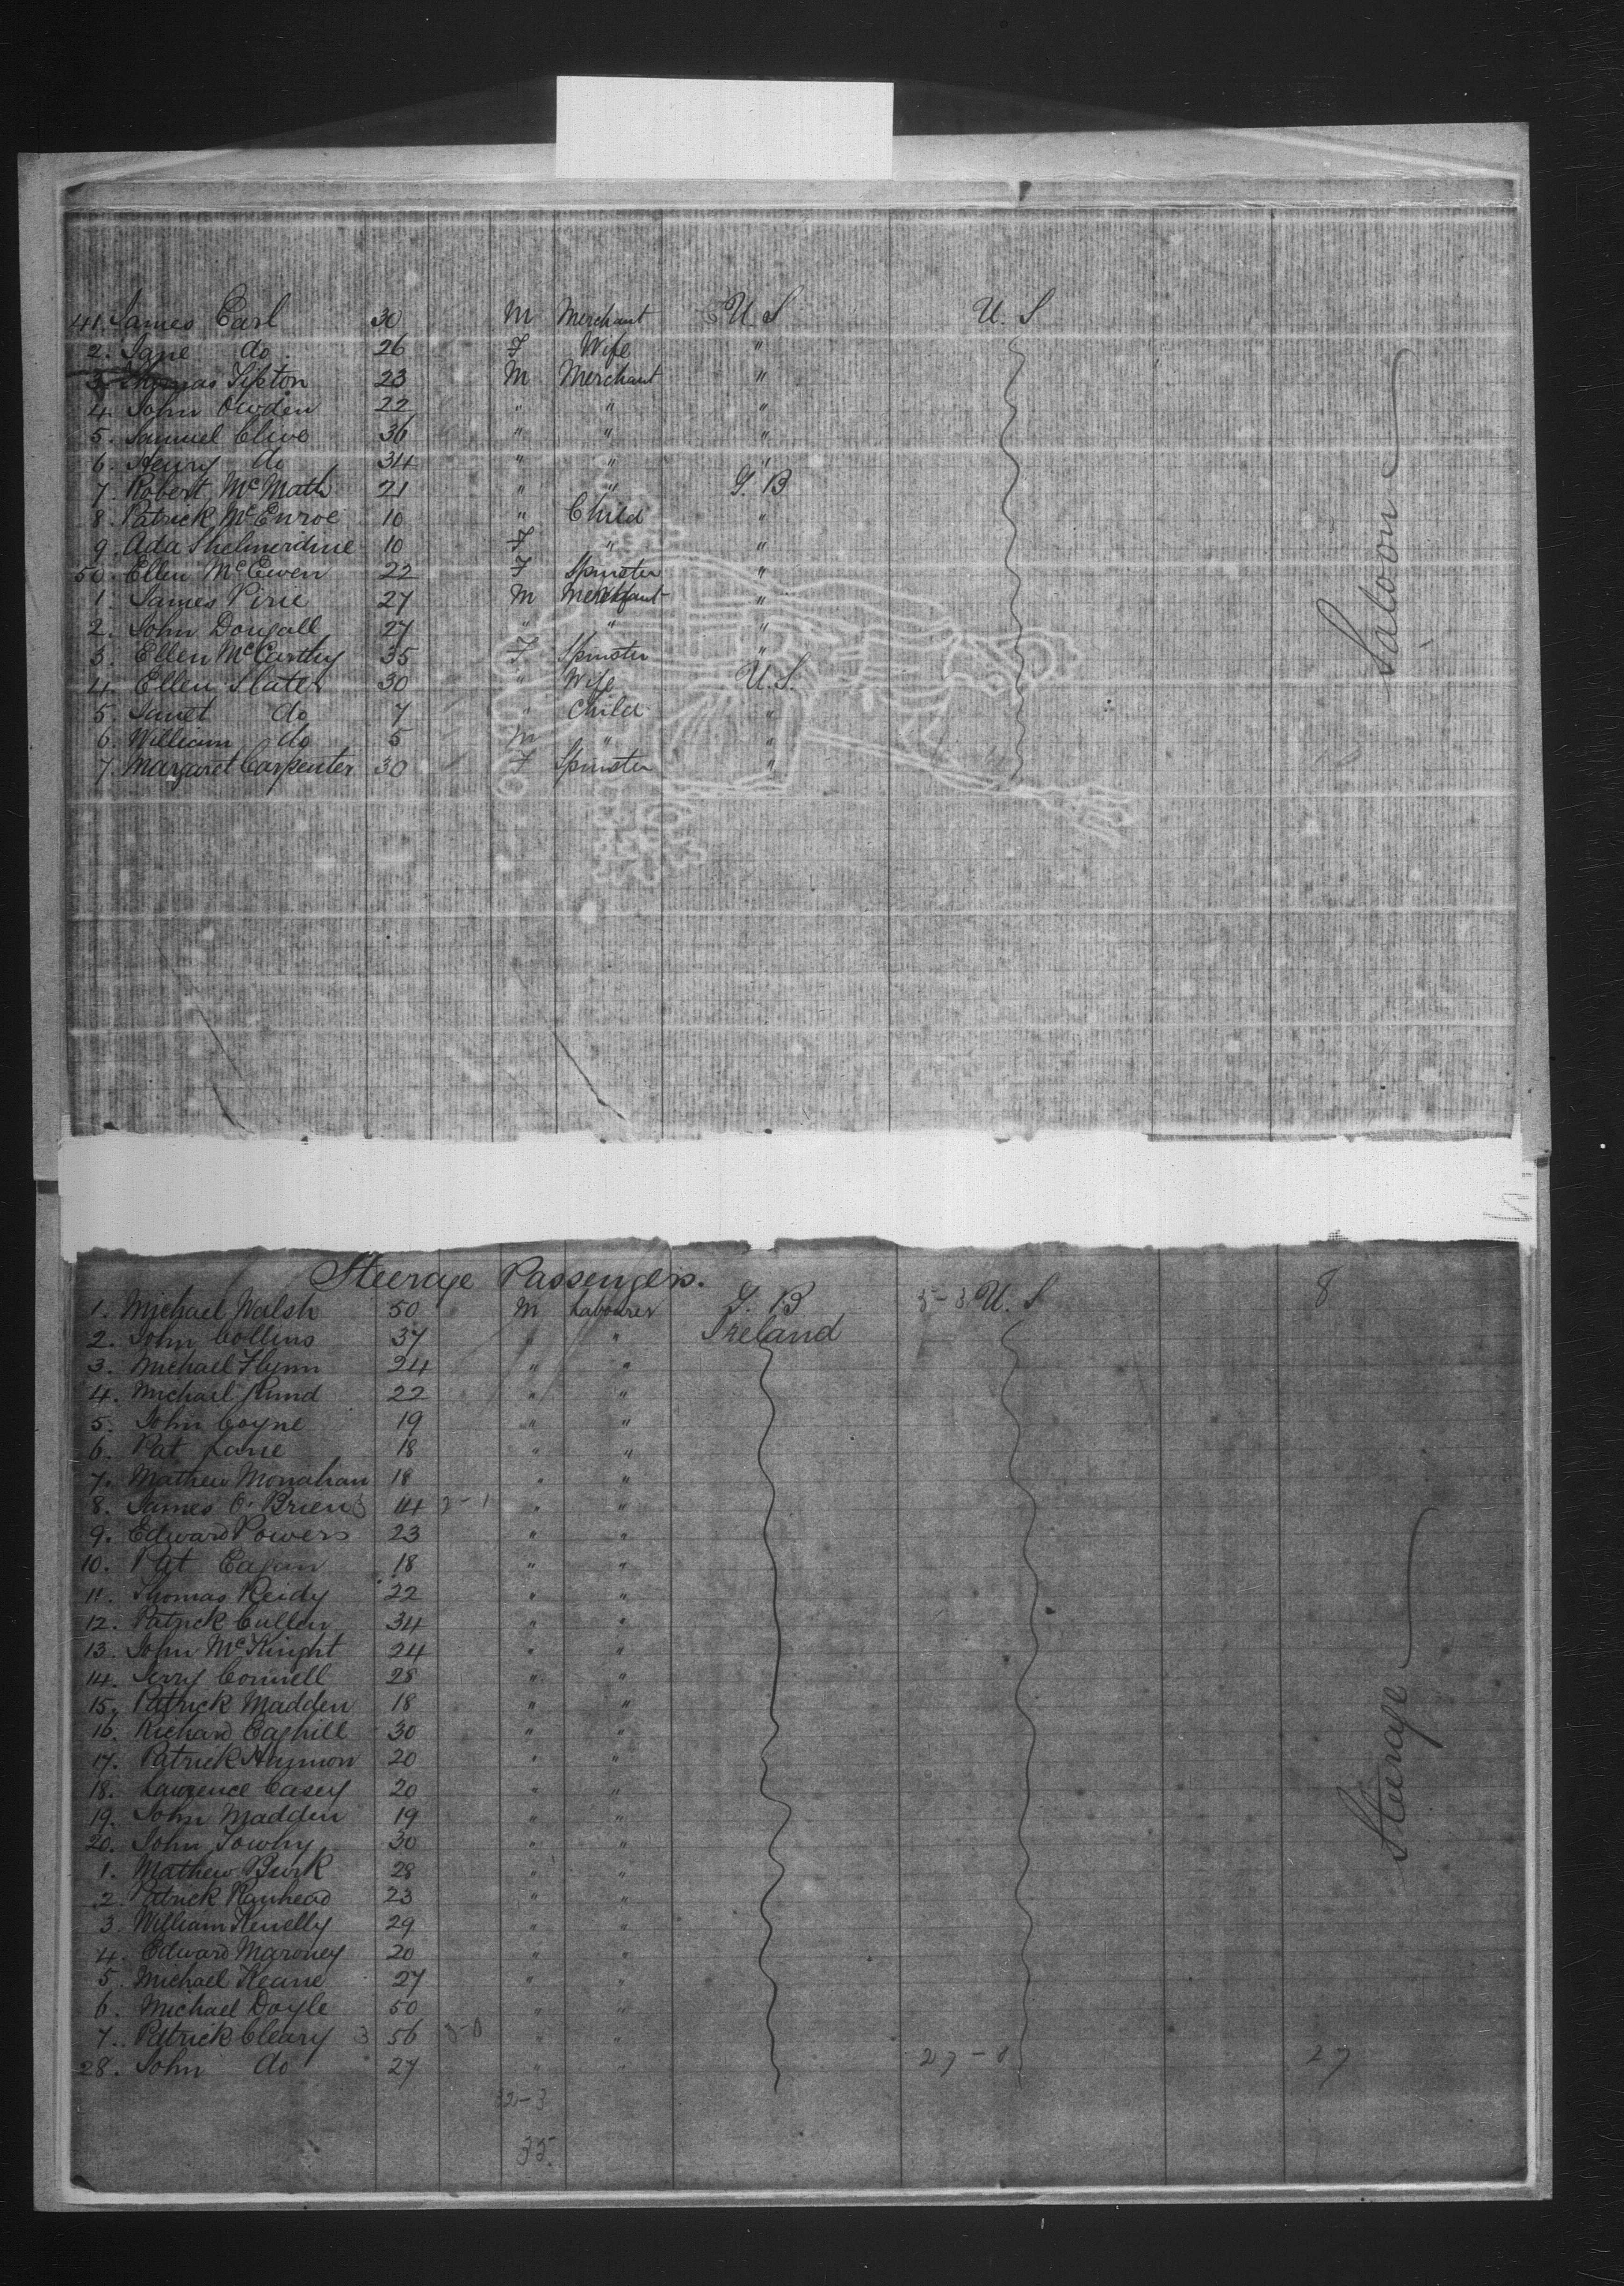 41. James Earl 30 M Merchant U. S U. S
2. Jane do. 26 F Wife "
3. Thomas Tipton 23 M Merchant "
4. John Owden 22 " " "
5. Samuel Clive 36 " " "
6. Henry do 34 " " "
7. Robert McMath 21 " " G. B
8. Patrick McEnroe 10 " Child "
9. Ada Shelmerdine 10 F " "
50. Ellen McEwen 22 F Spinster "
1. James Pirie 27 M Merchant "
2. John Dougall 27 " " "
3. Ellen McCarthy 35 F Spinster "
4. Ellen Slater 30 " Wife U. S.
5. Janet do 7 " Child "
6. William do 5 M " "
7. Margaret Carpenter 30 F Spinster "
Saloon
Steerage Passengers.
1. Michael Walsh 50 M Labourer G. B U. S 8
2. John Collins 37 " " Ireland
3. Michael Flynn 24 " "
4. Michael 22 " "
5. John Coyne 19 " "
6. Pat Lane 18 " "
7. Mathew Monahan 18 " "
8. James O'Brien 14 " "
9. Edward Powers 23 " "
10. Pat Eagan 18 " "
11. Thomas Reidy 22 " "
12. Patrick Cullen 34 " "
13. John McKnight 24 " "
14. Jerry Connell 28 " "
15. Patrick Madden 18 " "
16. Richard Caghill 30 " "
17. Patrick 20 " "
18. Lawrence Casey 20 " "
19. John Madden 19 " "
20. John 30 " "
1. Mathew Burk 28 " "
2. Patrick 23 " "
3. William Kenelly 29 " "
4. Edward Maroney 20 " "
5. Michael Keane 27 " "
6. Michael Doyle 50 " "
7. Patrick Cleary 56 " "
28. John do 27 " " 27
Steerage
35.